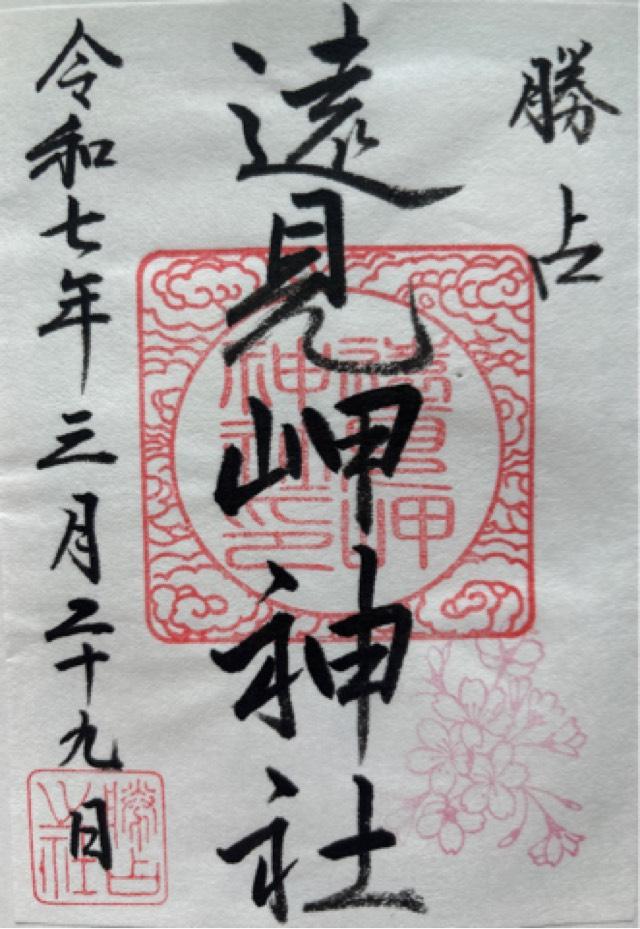 勝占
遠見岬神社
令和七年三月二十九日
遠見岬
神社之印
勝占
之社